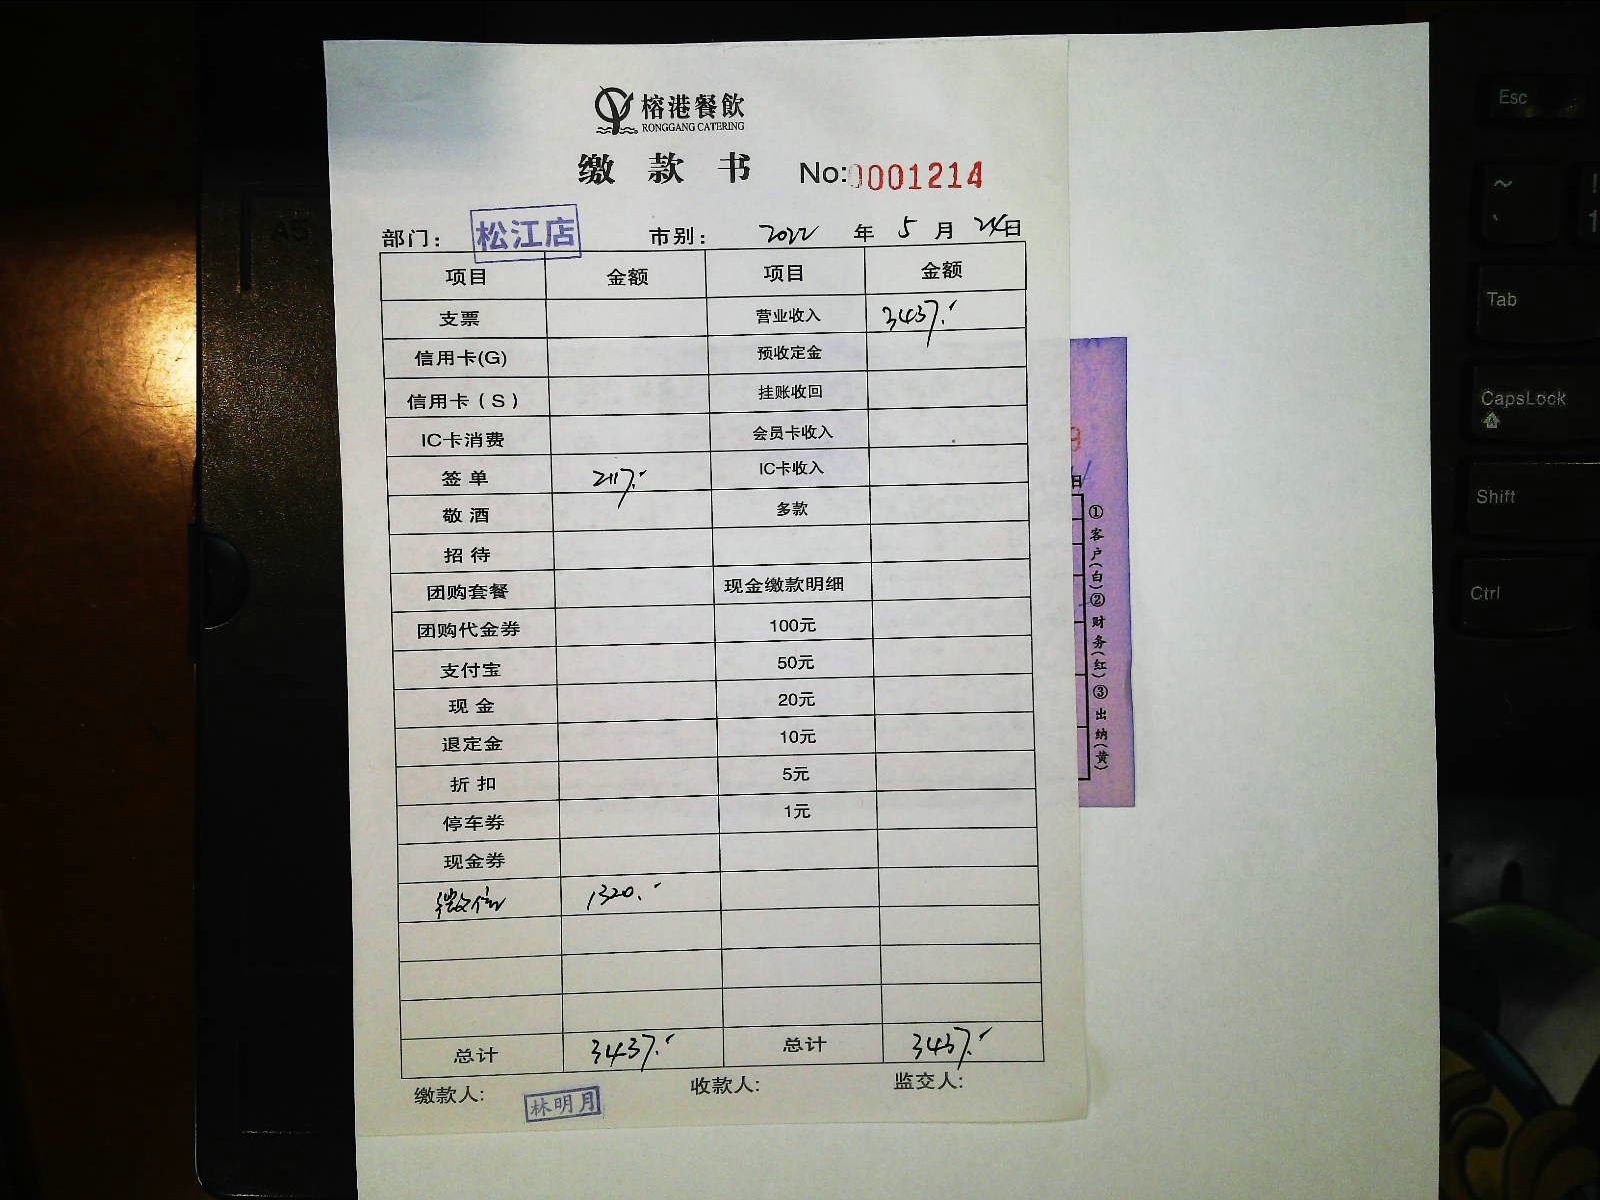 榕港餐飲
RONGGANG CATERING
缴 款 书 No:0001214
部门: 松江店 市别: 2022 年 5 月 24日
项目 金额 项目 金额
支票 营业收入 3437.-
信用卡(G) 预收定金
信用卡(S) 挂账收回
IC卡消费 会员卡收入
签单 2117.- IC卡收入
敬酒 多款
招待
团购套餐 现金缴款明细
团购代金券 100元
支付宝 50元
现金 20元
退定金 10元
折扣 5元
停车券 1元
现金券
微信 1320.-
总计 3437.- 总计 3437.-
缴款人: 林明月 收款人: 监交人:
9
日
①客户(白)②财务(红)③出纳(黄)
Esc
~
!
` 1
Tab
CapsLock
Shift
Ctrl